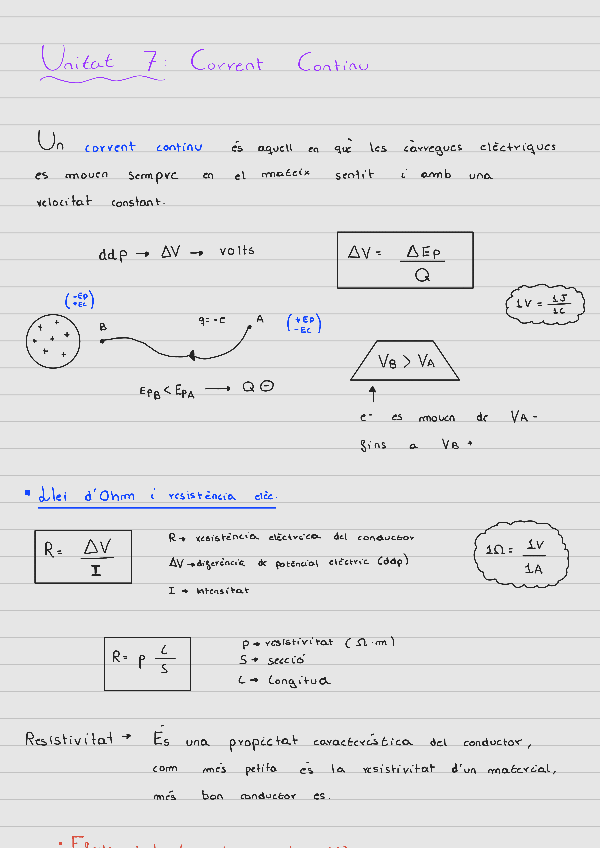 Unitat 7: Corrent Continu
Un corrent continu és aquell en què les càrregues elèctriques
es mouen sempre en el mateix sentit i amb una
velocitat constant.
ddp → ΔV → volts
ΔV = ΔEp / Q
1V = 1J / 1C
(-Ep +Ec)
B
q = -e
A
(+Ep -Ec)
+ + + + + + +
EpB < EpA → Q ⊖
VB > VA
e⁻ es mouen de VA -
fins a VB +
▪ Llei d'Ohm i resistència elèc.
R = ΔV / I
R → resistència elèctrica del conductor
ΔV → diferència de potencial elèctric (ddp)
I → Intensitat
1Ω = 1V / 1A
R = ρ L / S
ρ → resistivitat (Ω·m)
S → secció
L → Longitud
Resistivitat → És una propietat característica del conductor,
com més petita és la resistivitat d'un material,
més bon conductor es.